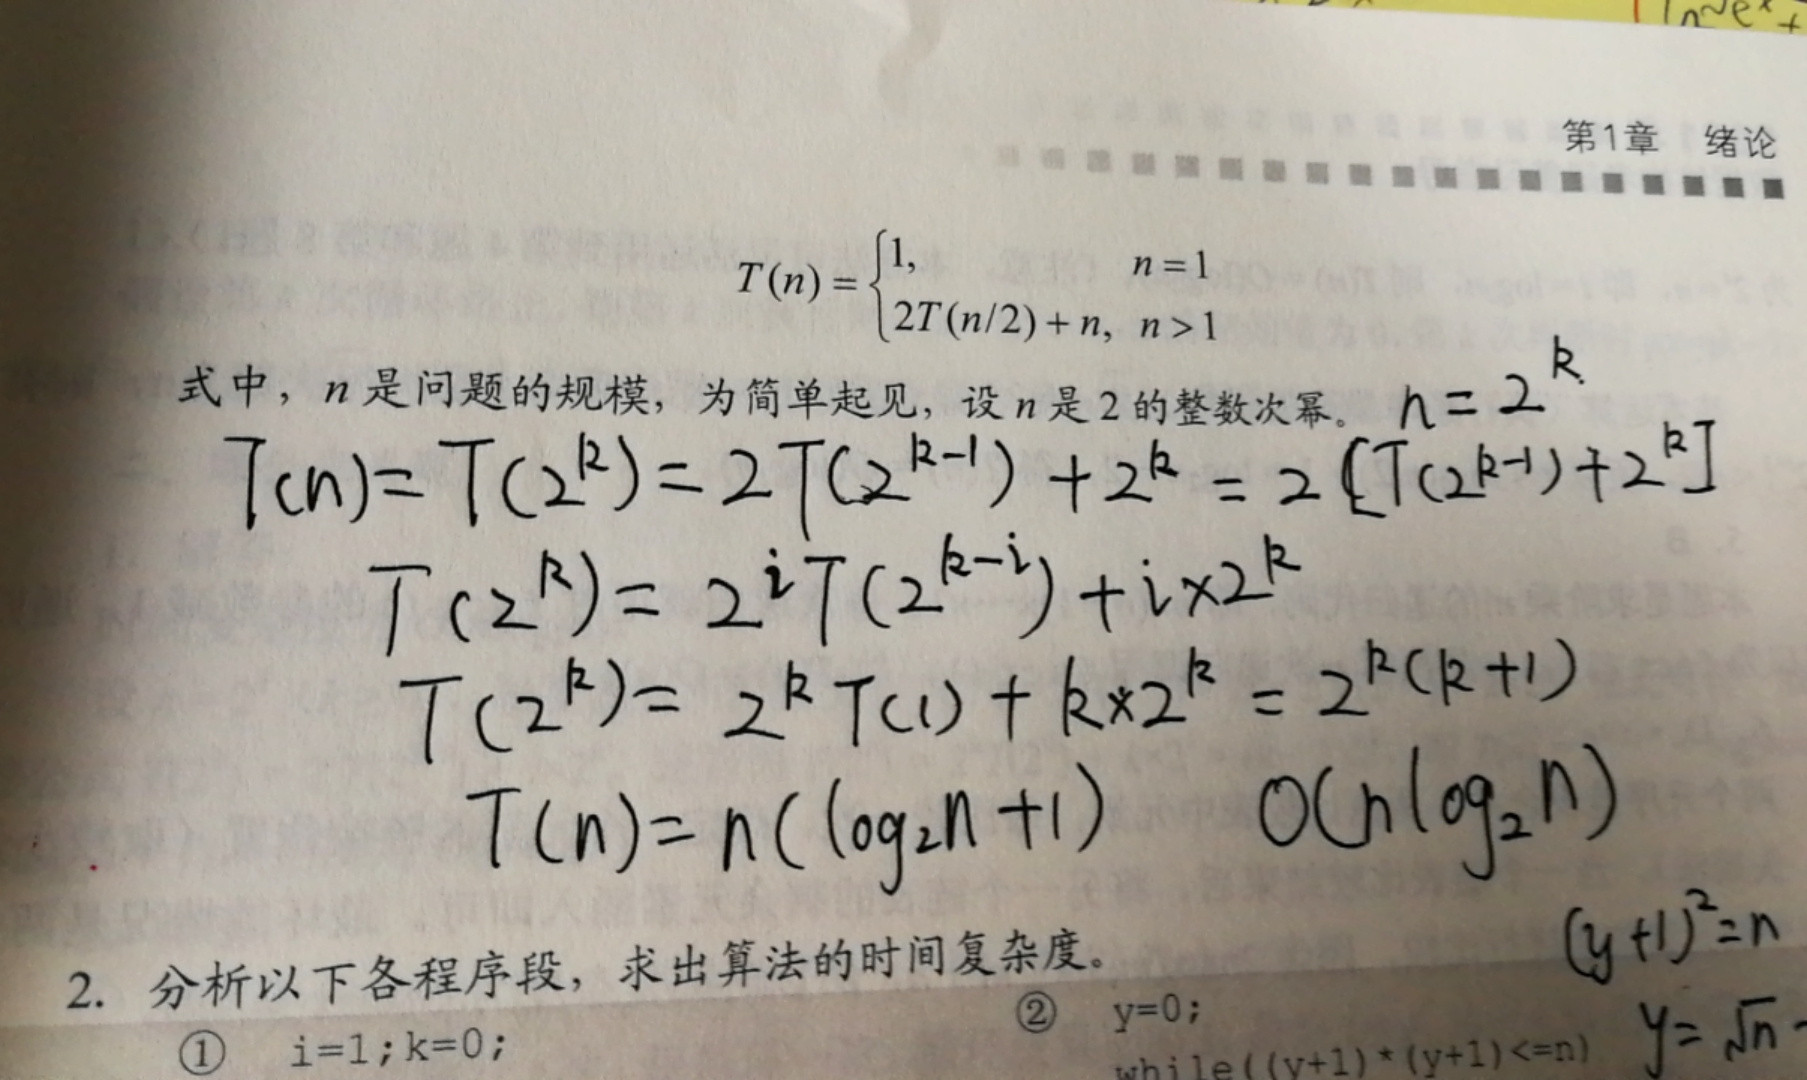 ln√e^x+
第1章 绪论
T(n) = { 1, n = 1
2T(n/2) + n, n > 1
式中，n 是问题的规模，为简单起见，设 n 是 2 的整数次幂。 n = 2^k.
T(n) = T(2^k) = 2T(2^(k-1)) + 2^k = 2[T(2^(k-1)) + 2^k]
T(2^k) = 2^i T(2^(k-i)) + i×2^k
T(2^k) = 2^k T(1) + k×2^k = 2^k(k+1)
T(n) = n(log₂n+1) O(nlog₂n)
(y+1)²=n
2. 分析以下各程序段，求出算法的时间复杂度。
① i=1;k=0; ② y=0; y=√n-
while((y+1)*(y+1)<=n)